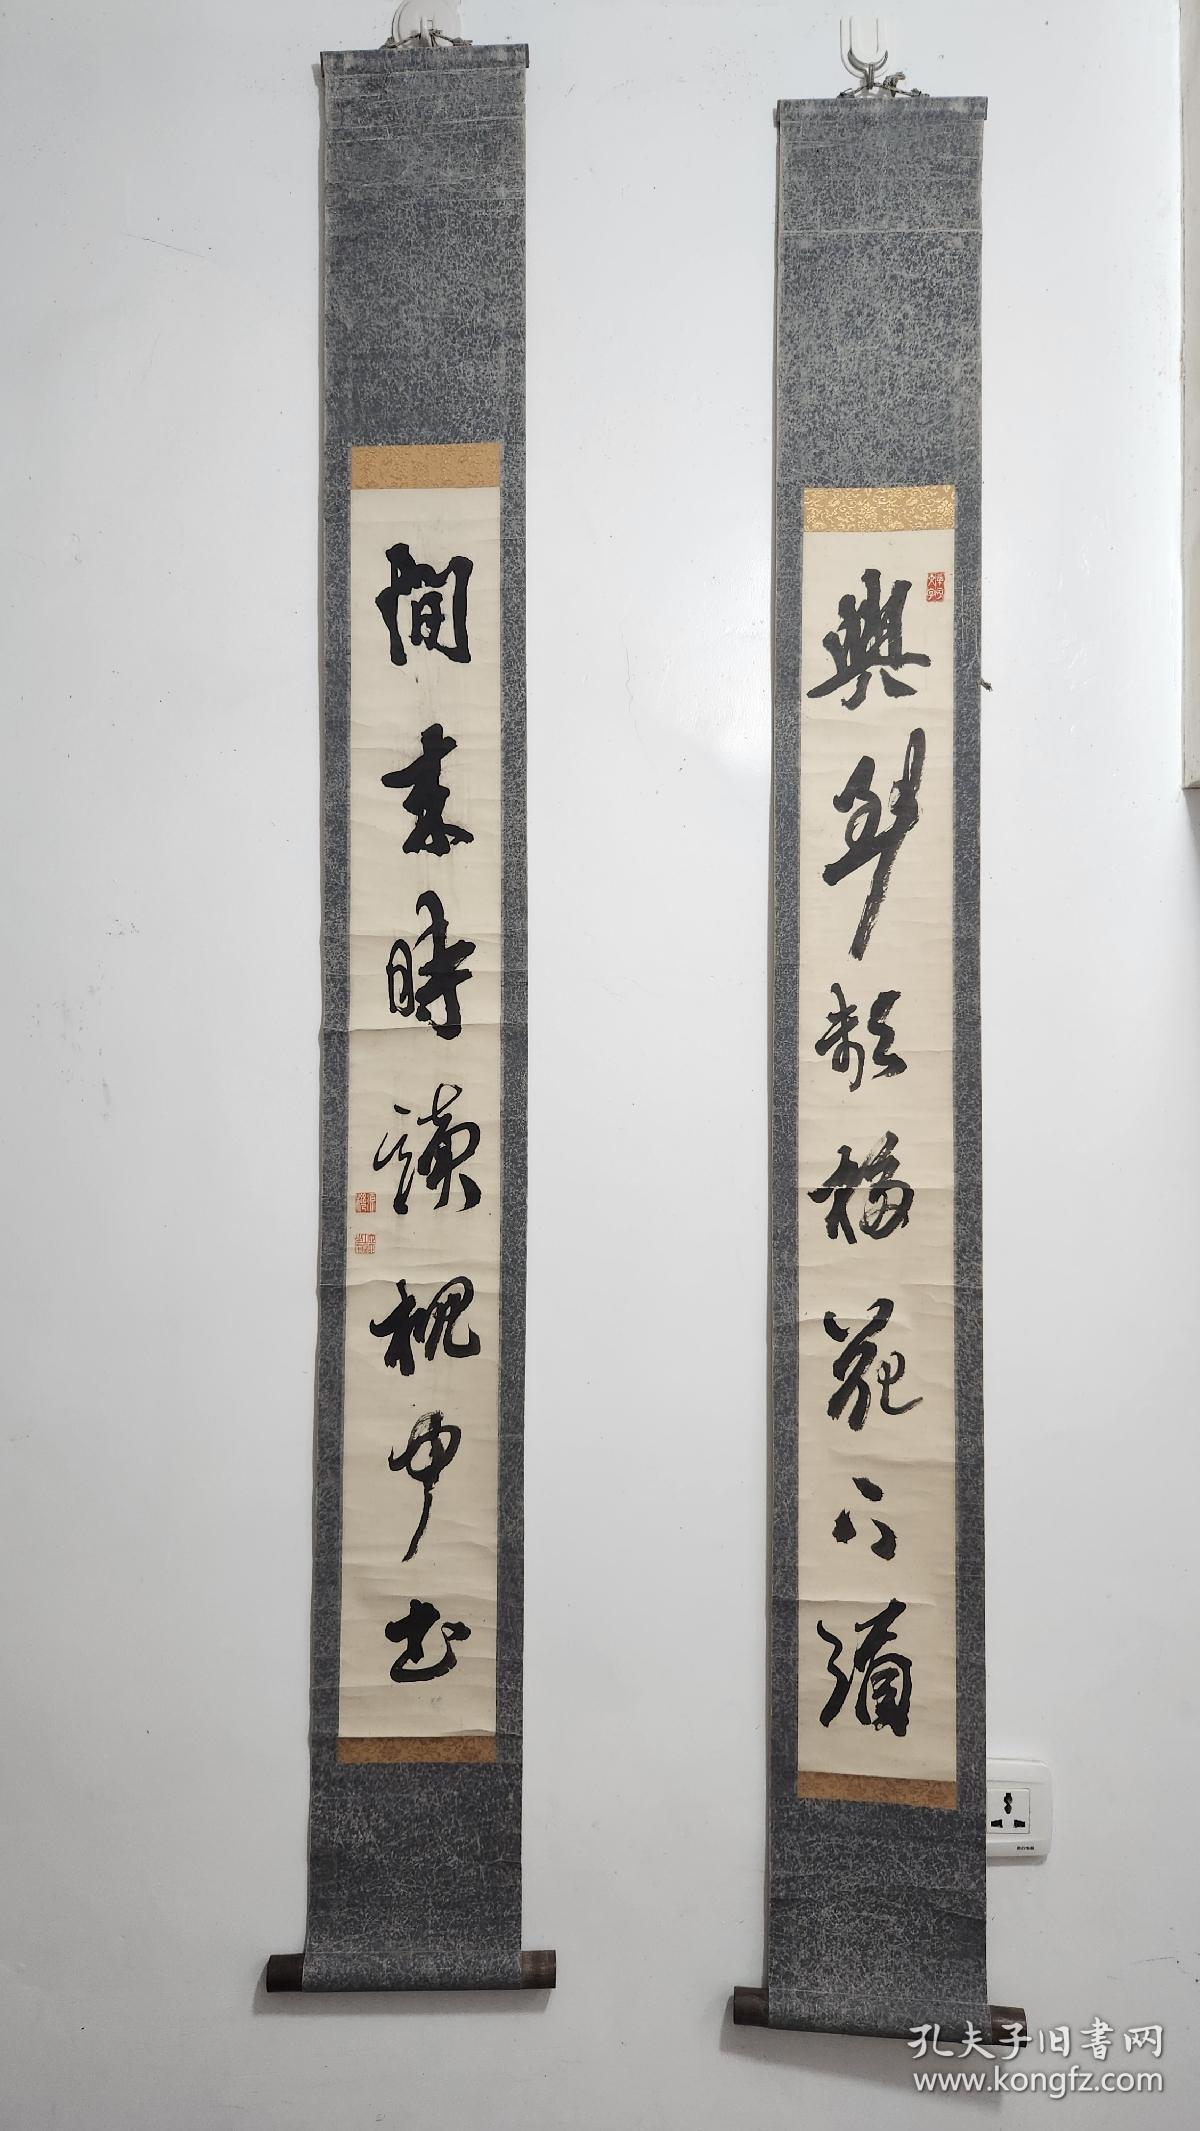 興到頻移花下酒
閒來時讀枕中書
孔夫子旧書网
www.kongfz.com